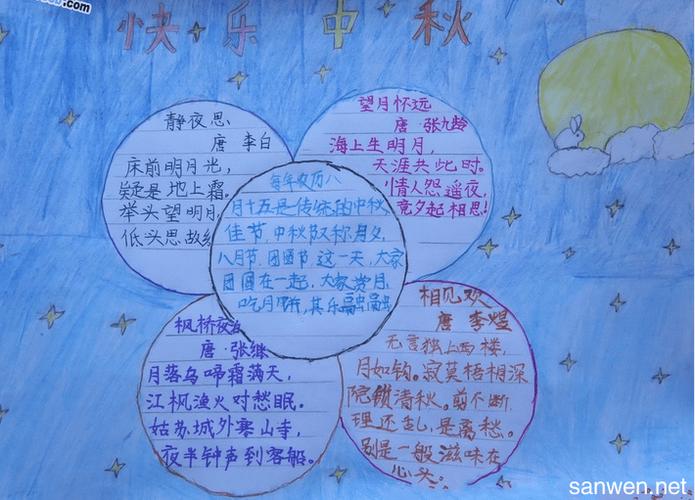 .com
快乐中秋
静夜思
唐 李白
床前明月光，
疑是地上霜。
举头望明月，
低头思故
望月怀远
唐 张九龄
海上生明月，
天涯共此时。
情人怨遥夜，
竟夕起相思！
每年农历八
月十五是传统的中秋
佳节，中秋又称月夕，
八月节，团圆节，这一天，大家
团圆在一起，大家赏月，
吃月饼，其乐融融
枫桥夜泊
唐·张继
月落乌啼霜满天，
江枫渔火对愁眠。
姑苏城外寒山寺，
夜半钟声到客船。
相见欢
唐 李煜
无言独上西楼，
月如钩。寂寞梧桐深
院锁清秋。剪不断
理还乱，是离愁。
别是一般滋味在
心头。
sanwen.net